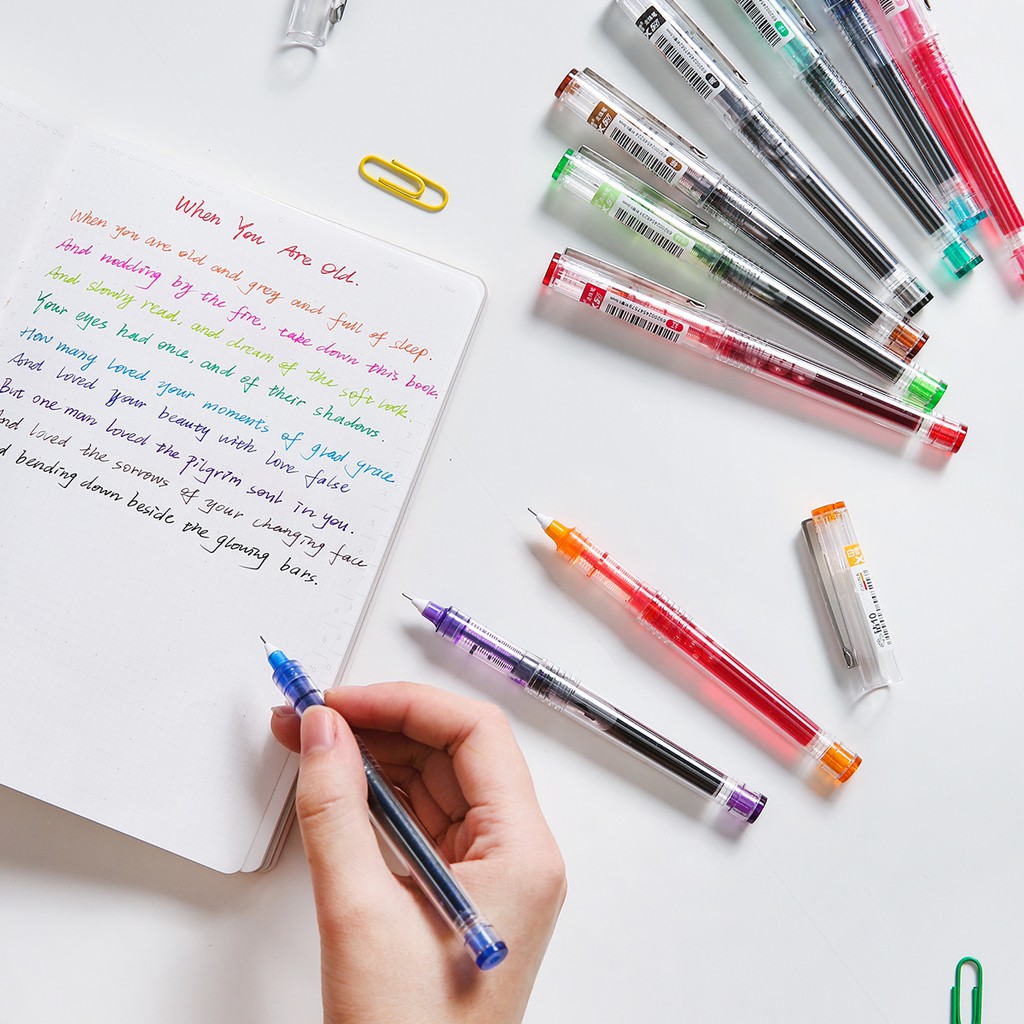 When You Are Old.
When you are old and grey and full of sleep.
And nodding by the fire, take down this book.
And slowly read, and dream of the soft look
Your eyes had once, and of their shadows.
How many loved your moments of glad grace
And loved your beauty with love false
But one man loved the pilgrim soul in you.
And loved the sorrows of your changing face
bending down beside the glowing bars.